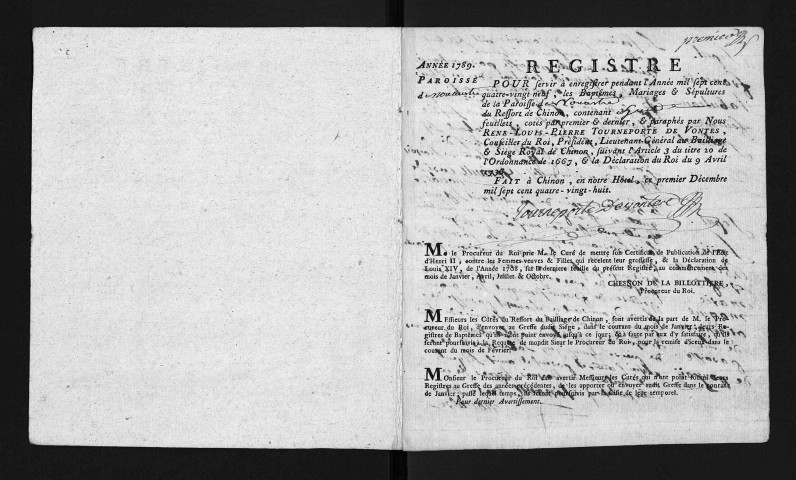 premier
ANNÉE 1789.
REGISTRE
PAROISSE
POUR servir à enregistrer pendant l'Année mil sept cent
quatre-vingt-neuf, les Baptêmes, Mariages & Sépultures
de la Paroisse de
du Ressort de Chinon, contenant
feuillets, cotés par premier & dernier, & paraphés par Nous
RENE-LOUIS-PIERRE TOURNEPORTE DE VONTES,
Conseiller du Roi, Président, Lieutenant-Général au Bailliage
& Siége Royal de Chinon, suivant l'Article 3 du titre 20 de
l'Ordonnance de 1667, & la Déclaration du Roi du 9 Avril
FAIT à Chinon, en notre Hôtel, ce premier Décembre
mil sept cent quatre-vingt-huit.
Tourneporte Devontes
M. le Procureur du Roi prie M. le Curé de mettre son Certificat de Publication de l'Edit
d'Henri II, contre les Femmes-veuves & Filles qui recelent leur grossesse, & la Déclaration de
Louis XIV, de l'Année 1708, sur la derniere feuille du présent Registre, au commencement des
mois de Janvier, Avril, Juillet & Octobre.
CHESNON DE LA BILLOTTIERE,
Procureur du Roi.
Messieurs les Curés du Ressort du Bailliage de Chinon, sont avertis de la part de M. le Pro-
cureur du Roi, d'envoyer au Greffe dudit Siége, dans le courant du mois de Janvier, leurs Re-
gistres de Baptêmes qu'ils n'ont point envoyé jusqu'à ce jour; & à faute par eux d'y satisfaire, qu'ils
seront poursuivis à la Requête de mondit Sieur le Procureur du Roi, pour la remise d'iceux dans le
courant du mois de Février.
Monsieur le Procureur du Roi fait avertir Messieurs les Curés qui n'ont point fourni leurs
Registres au Greffe des années précédentes, de les apporter ou envoyer audit Greffe dans le courant
de Janvier; passé lequel temps, ils seront poursuivis par la saisie de leur temporel.
Pour dernier Avertissement.